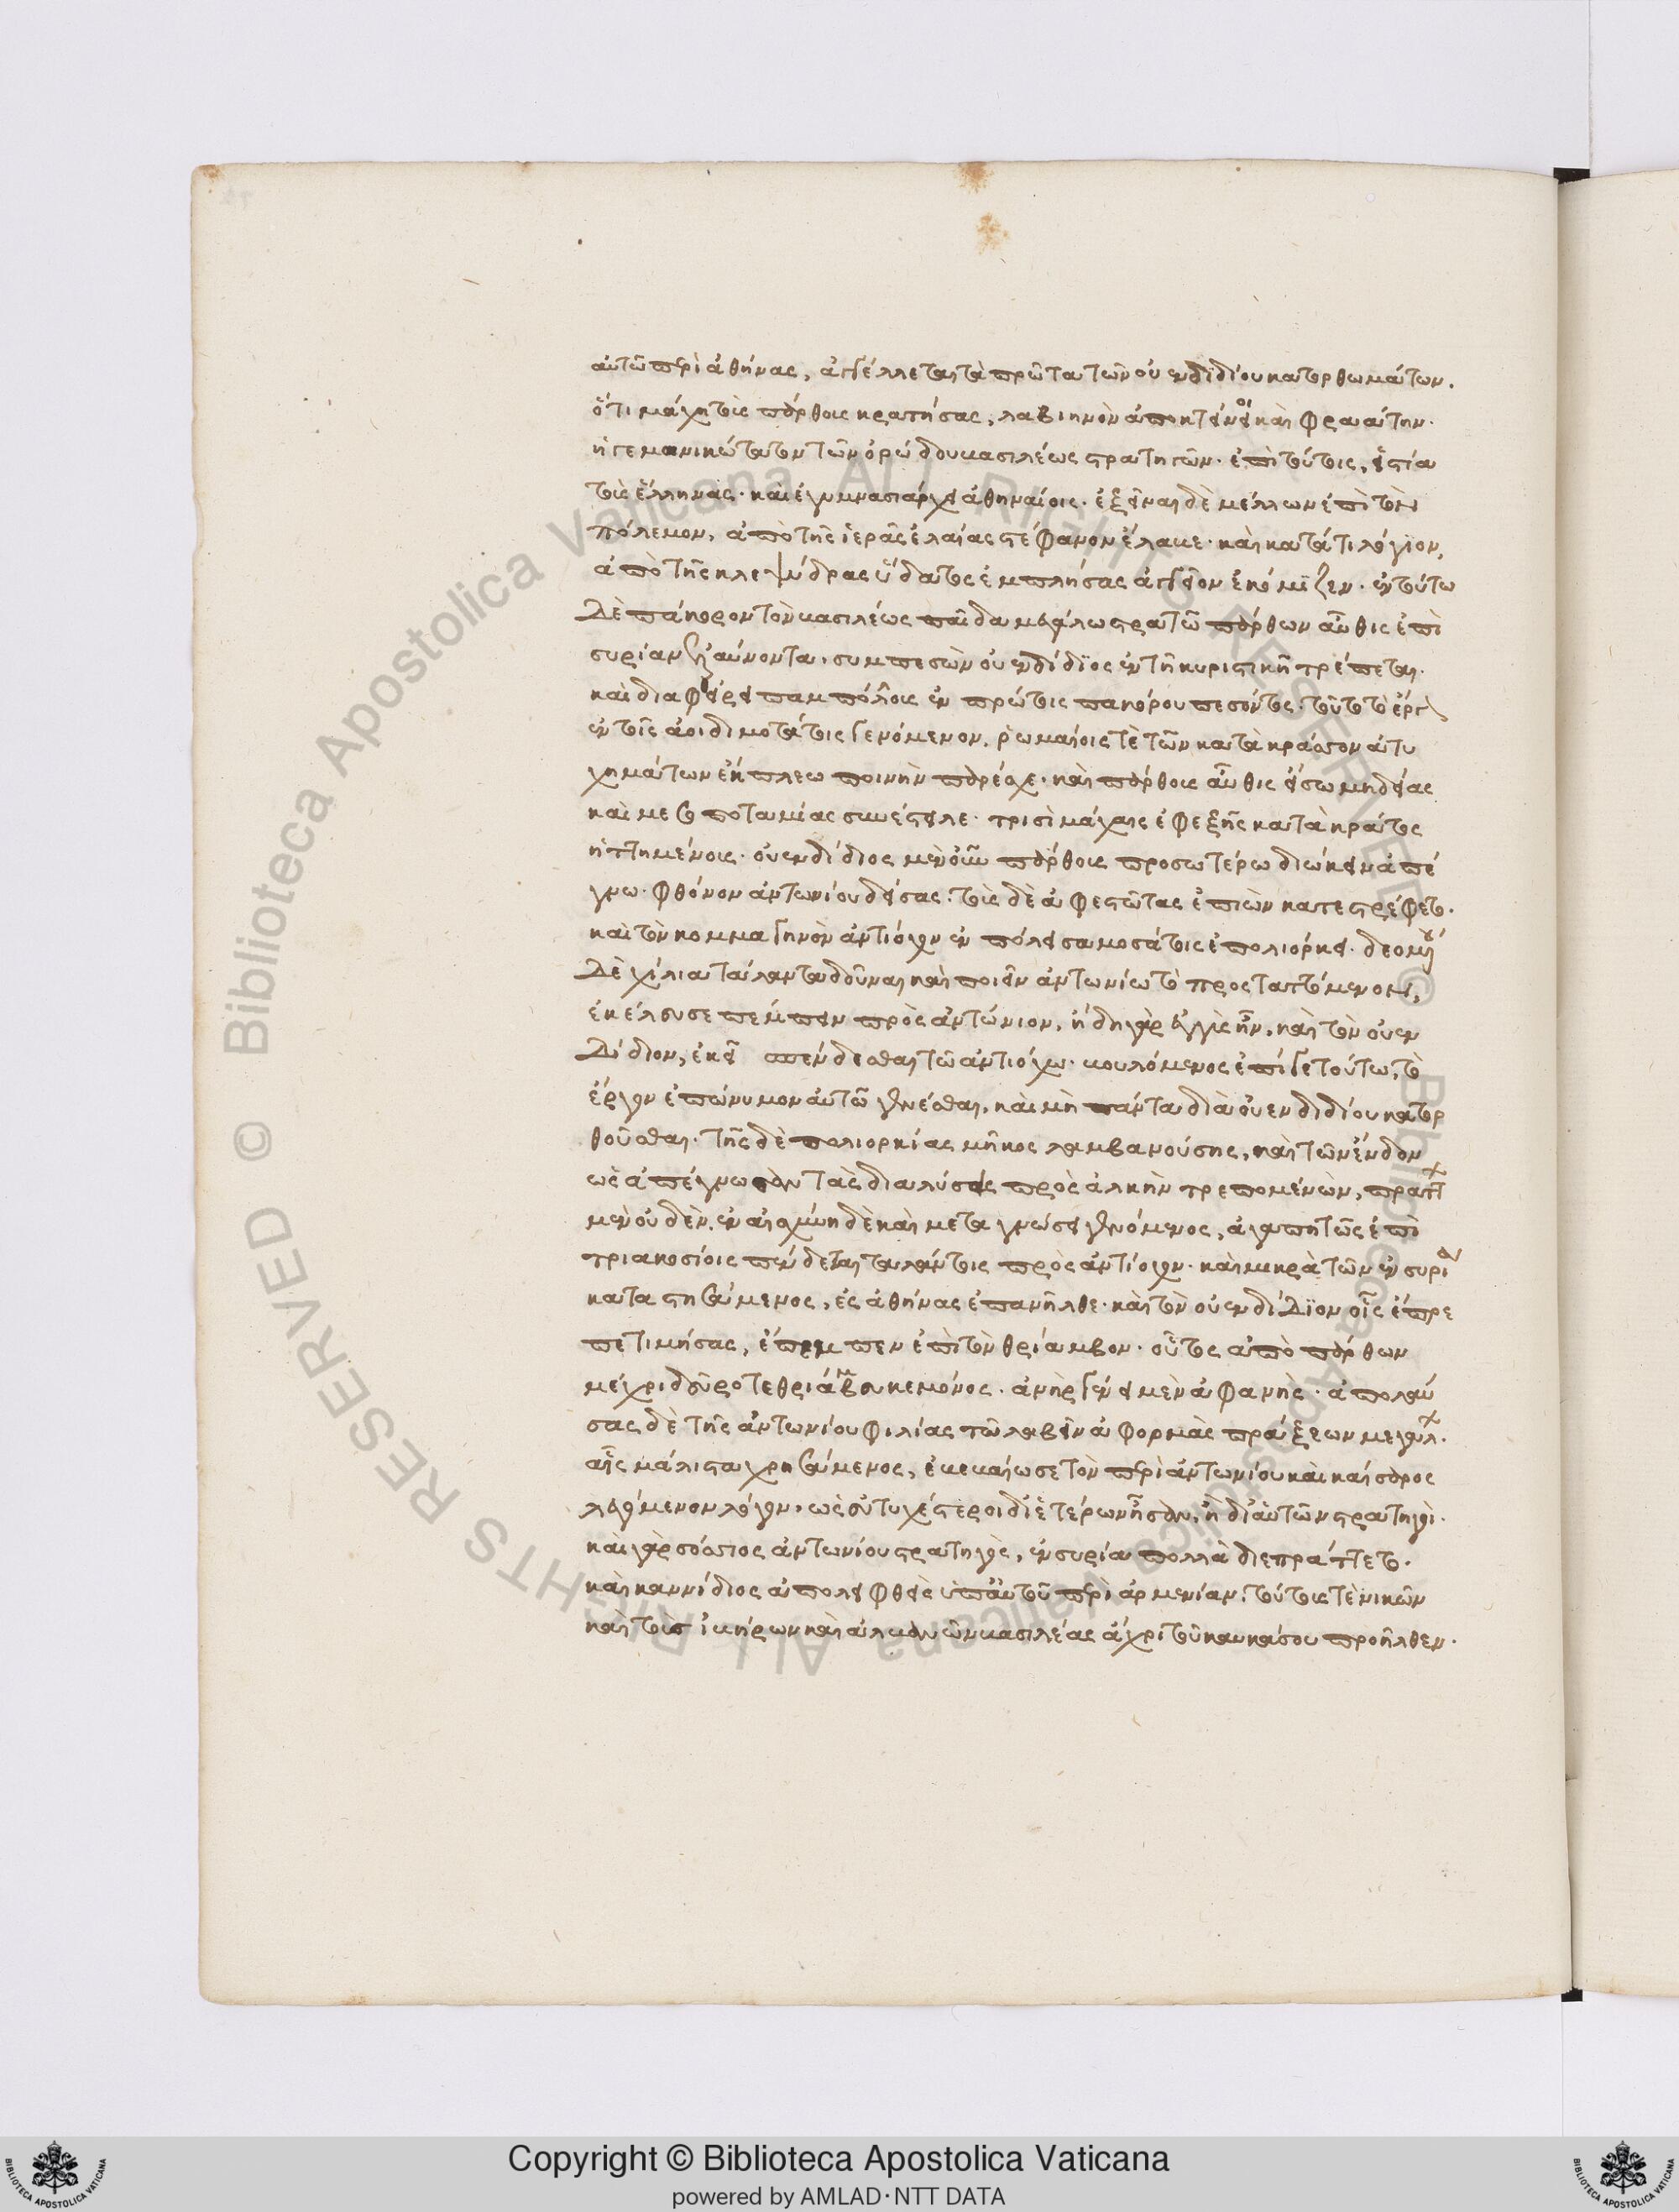 αὐτῶ περὶ ἀθήνας, ἀγγέλλεται τὰ πρῶτα τῶν οὐενδιδίου κατορθωμάτων.
ὅτι μάχη τοὺς πάρθους κρατήσας, λαβιηνὸν ἀποκτείνοι καὶ φραάτην.
ἡγεμονικώτατον τῶν ὀρώδου βασιλέως στρατηγῶν. ἐπὶ τούτοις, εἱστία
τοὺς ἕλληνας. καὶ ἐγυμνασιάρχει ἀθηναίοις. ἐξιέναι δὲ μέλλων ἐπὶ τὸν
πόλεμον, ἀπὸ τῆς ἱερᾶς ἐλαίας στέφανον ἔλαβε. καὶ κατά τι λόγιον,
ἀπὸ τῆς κλεψύδρας ὕδατος ἐμπλήσας ἀγγεῖον ἐκόμιζεν. ἐν τούτω
δὲ πάκορον τὸν βασιλέως παῖδα μεγάλω στρατῶ πάρθων αὖθις ἐπὶ
συρίαν ἐλαύνοντα, συμπεσὼν οὐενδίδιος ἐν τῆ κυριστικῆ τρέπεται.
καὶ διαφθείρει παμπόλλους ἐν πρώτοις πακόρου πεσόντος. τοῦτο τὸ ἔργον
ἐν τοῖς ἀοιδιμοτάτοις γενόμενον, ῥωμαίοις τὲ τῶν κατὰ κράσσον ἀτυ
χημάτων ἔκπλεω ποινὴν παρέσχε. καὶ πάρθους αὖθις εἴσω μηδείας
καὶ μεσοποταμίας συνέστειλε. τρισὶ μάχαις ἐφεξῆς κατὰ κράτος
ἡττημένους. οὐενδίδιος μὲν οὖν πάρθους προσωτέρω διώκειν ἀπέ
γνω. φθόνον ἀντωνίου δείσας. τοὺς δὲ ἀφεστῶτας ἐπιὼν κατεστρέφετο.
καὶ τὸν κομμαγηνὸν ἀντίοχον ἐν πόλει σαμοσάτοις ἐπολιόρκει. δεομένου
δὲ χίλια τάλαντα δοῦναι καὶ ποιεῖν ἀντωνίω τὸ προσταττόμενον,
ἐκέλευσε πέμπειν πρὸς ἀντώνιον, ἤδη γὰρ ἐγγὺς ἦν, καὶ τὸν οὐεν
δίδιον, ἐκεῖ σπένδεσθαι τῶ ἀντιόχω. βουλόμενος ἐπί γε τούτω, τὸ
ἔργον ἐπώνυμον αὐτῶ γενέσθαι, καὶ μὴ πάντα διὰ οὐενδιδίου κατορ
θοῦσθαι. τῆς δὲ πολιορκίας μῆκος λαμβανούσης, καὶ τῶν ἔνδον
ὡς ἀπέγνωσαν τὰς διαλύσεις πρὸς ἀλκὴν τρεπομένων, πράττων
μὲν οὐδὲν, ἐν αἰσχύνη δὲ καὶ μεταγνώσει γενόμενος, ἀγαπητῶς ἐπὶ
τριακοσίοις σπένδεται ταλάντοις πρὸς ἀντίοχον. καὶ μικρὰ τῶν ἐν συρία
καταστησάμενος, ἐς ἀθήνας ἐπανῆλθε. καὶ τὸν οὐενδίδιον οἷς ἔπρε
πε τιμήσας, ἔπεμπεν ἐπὶ τὸν θρίαμβον. οὗτος ἀπὸ πάρθων
μέχρι δεῦρο τεθριάμβευκε μόνος. ἀνὴρ γένει μὲν ἀφανὴς. ἀπολαύ
σας δὲ τῆς ἀντωνίου φιλίας τῶ λαβεῖν ἀφορμὰς πράξεων μεγάλων.
αἷς μάλιστα χρησάμενος, ἐβεβαίωσε τὸν περὶ ἀντωνίου καὶ καίσαρος
λεγόμενον λόγον, ὡς εὐτυχέστεροι δι' ἑτέρων ἦσαν, ἢ δι' αὑτῶν στρατηγοί.
καὶ γὰρ σόσσιος ἀντωνίου στρατηγὸς, ἐν συρία πολλὰ διεπράττετο.
καὶ κανίδιος ἀπολειφθεὶς ὑπ' αὐτοῦ περὶ ἀρμενίαν, τούτους τὲ νικῶν
καὶ τοὺς ἰβήρων καὶ ἀλβανῶν βασιλέας ἄχρι τοῦ καυκάσου προῆλθεν.